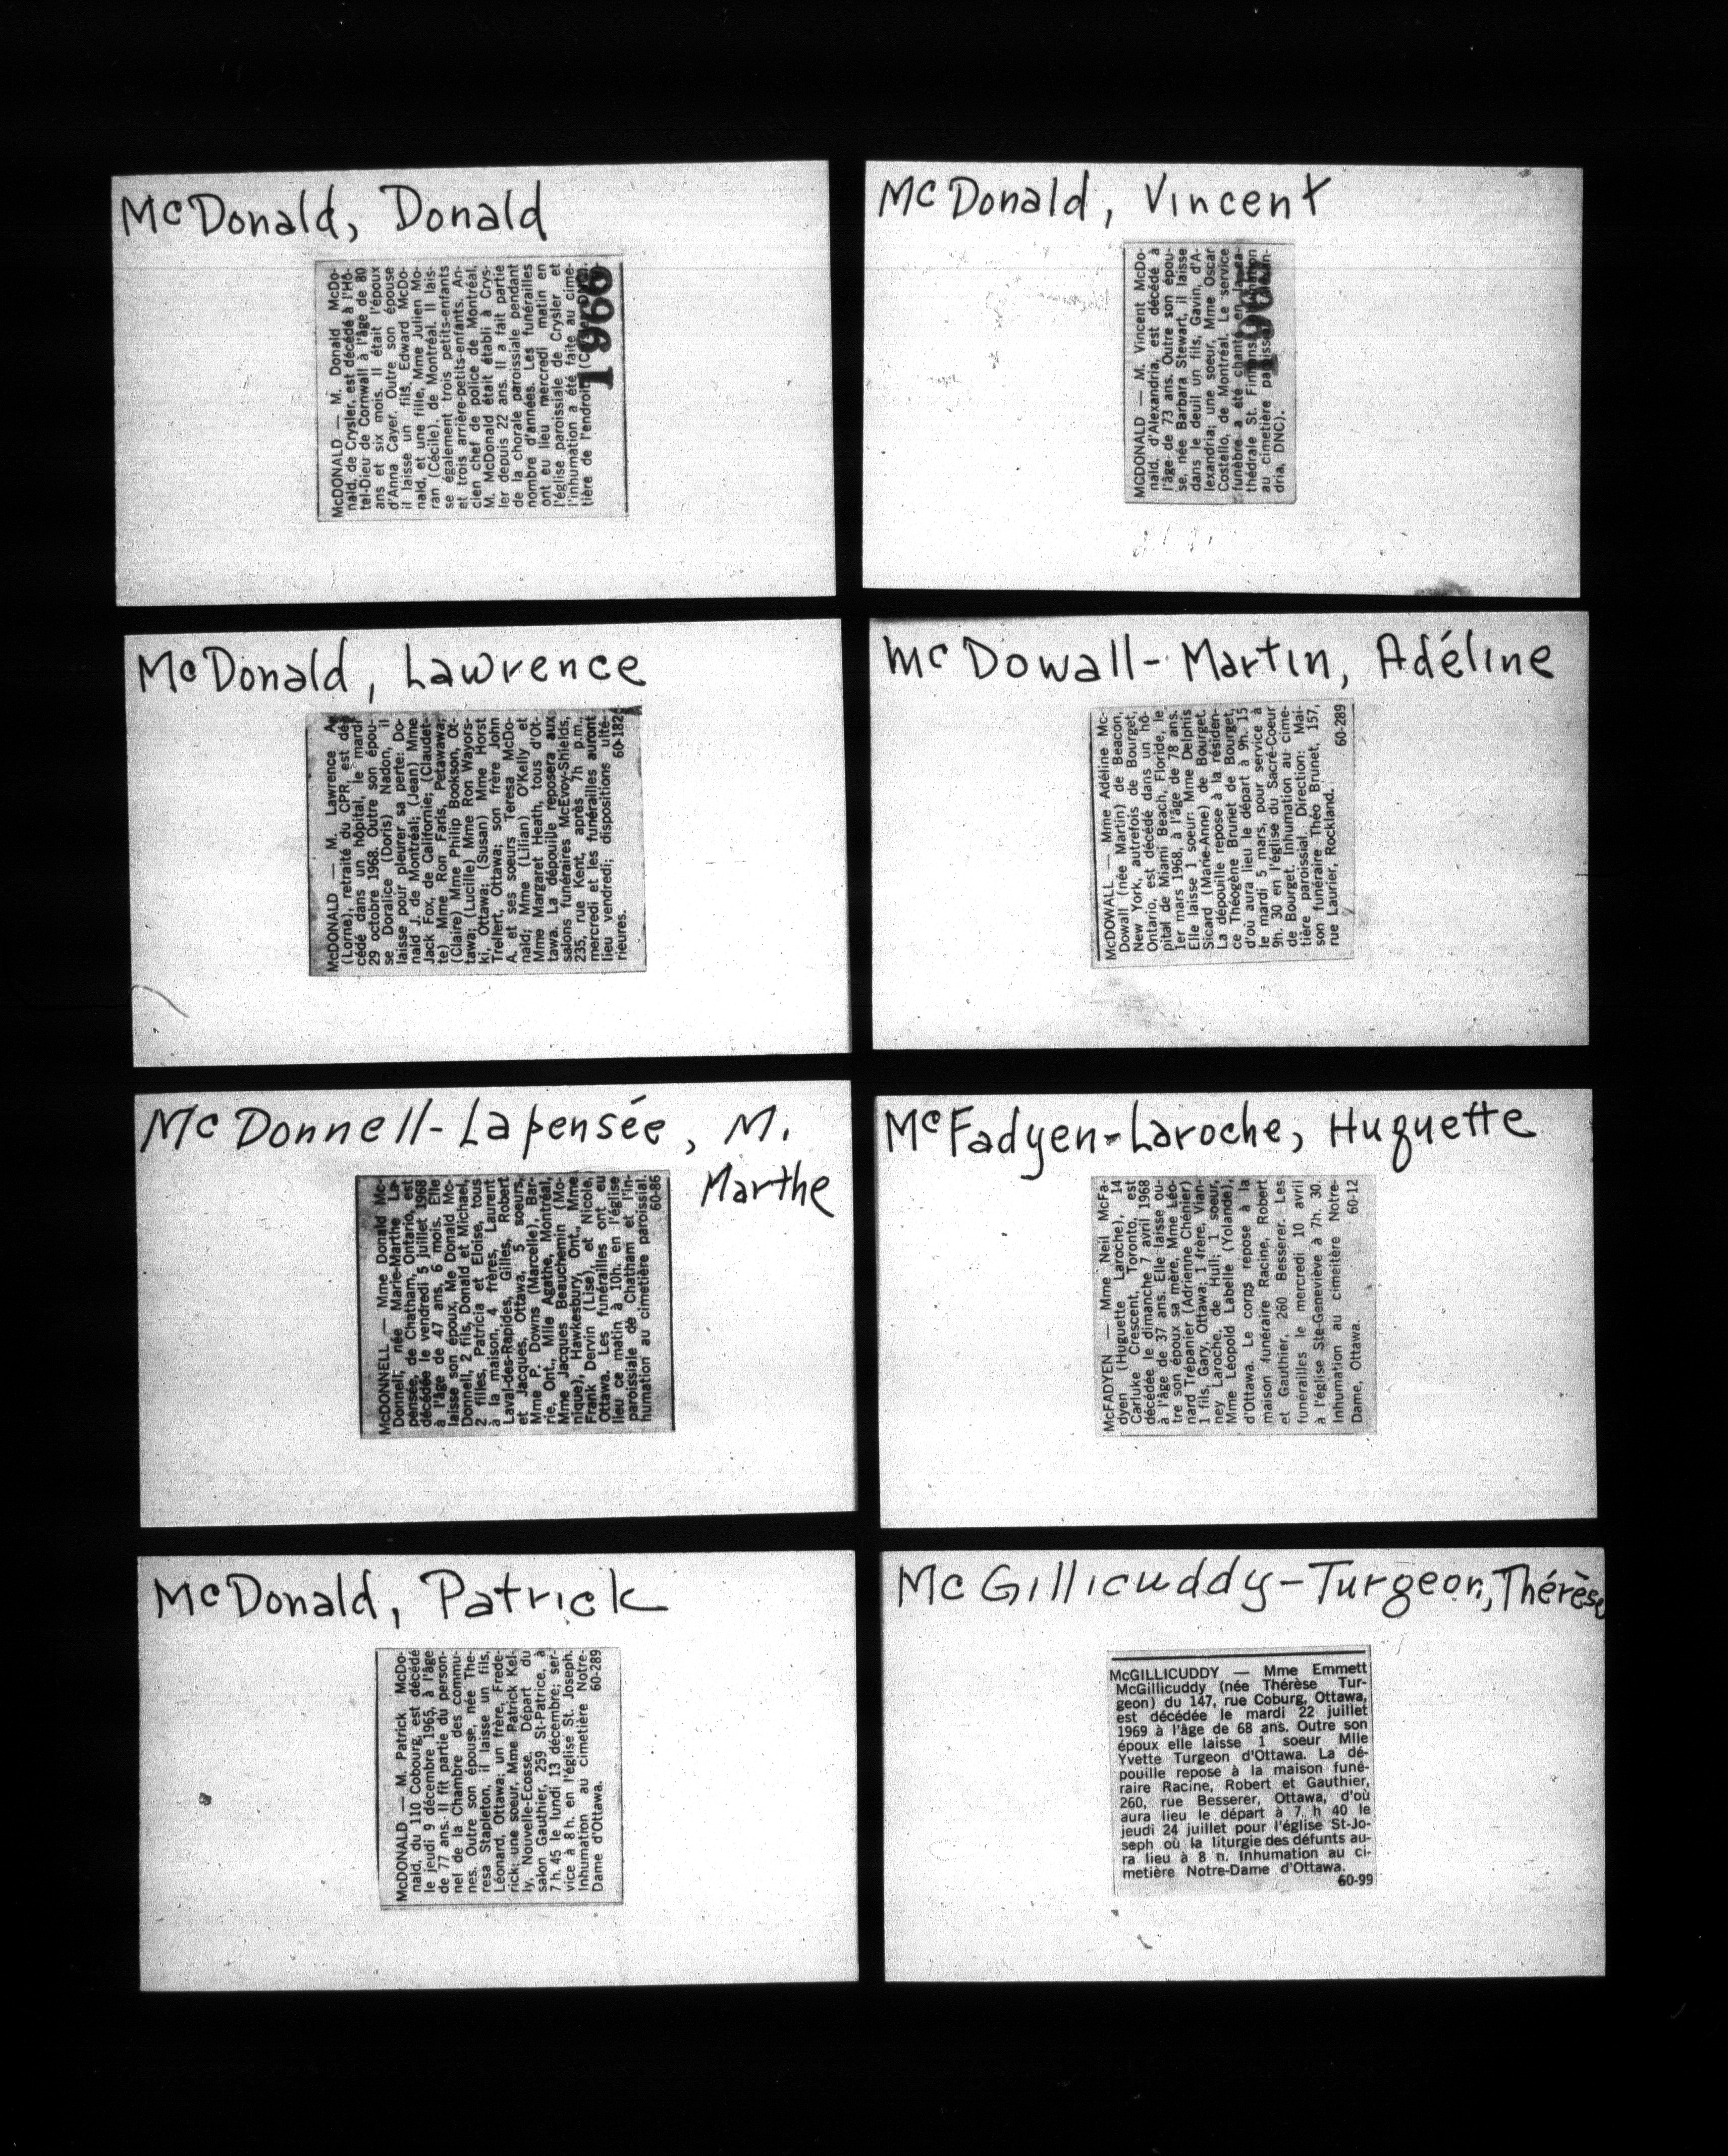 McDonald, Donald
McDONALD — M. Donald McDo-
nald, de Crysler, est décédé à l'Hô-
tel-Dieu de Cornwall à l'âge de 80
ans et six mois. Il était l'époux
d'Anna Cayer. Outre son épouse
il laisse un fils, Edward McDo-
nald, et une fille, Mme Julien Mo-
ran (Cécile), de Montréal. Il lais-
se également trois petits-enfants
et trois arrière-petits-enfants. An-
cien chef de police de Montréal,
M. McDonald était établi à Crys-
ler depuis 22 ans. Il a fait partie
de la chorale paroissiale pendant
nombre d'années. Les funérailles
ont eu lieu mercredi matin en
l'église paroissiale de Crysler et
l'inhumation a été faite au cime-
tière de l'endroit.
1966
McDonald, Vincent
MCDONALD — M. Vincent McDo-
nald, d'Alexandria, est décédé à
l'âge de 73 ans. Outre son épou-
se, née Barbara Stewart, il laisse
dans le deuil un fils, Gavin, d'A-
lexandria; une soeur, Mme Oscar
Costello, de Montréal. Le service
funèbre a été chanté en la ca-
thédrale St.
au cimetière
dria, DNC).
McDonald, Lawrence
McDONALD — M. Lawrence A.
(Lorne), retraité du CPR, est dé-
cédé dans un hôpital, le mardi
29 octobre 1968. Outre son épou-
se Doralice (Doris) Nadon, il
laisse pour pleurer sa perte: Do-
nald J. de Montréal; (Jean) Mme
Jack Fox, de Californie; (Claudet-
te) Mme Ron Faris, Petawawa;
(Claire) Mme Philip Bookson, Ot-
tawa; (Lucille) Mme Ron Wayors-
ki, Ottawa; (Susan) Mme Horst
Trellert, Ottawa; son frère John
A. et ses soeurs Teresa McDo-
nald; Mme (Lilian) O'Kelly et
Mme Margaret Heath, tous d'Ot-
tawa. La dépouille reposera aux
salons funéraires McEvoy-Shields,
235, rue Kent, après 7h p.m.,
mercredi et les funérailles auront
lieu vendredi; dispositions ulté-
rieures. 60-182
McDowall-Martin, Adéline
McDOWALL — Mme Adéline Mc-
Dowall (née Martin) de Beacon,
New York, autrefois de Bourget,
Ontario, est décédé dans un hô-
pital de Miami Beach, Floride, le
1er mars 1968, à l'âge de 78 ans.
Elle laisse 1 soeur: Mme Delphis
Sicard (Marie-Anne) de Bourget.
La dépouille repose à la résiden-
ce Théogène Brunet de Bourget,
d'où aura lieu le départ à 9h. 15
le mardi 5 mars, pour service à
9h. 30 en l'église du Sacré-Coeur
de Bourget. Inhumation au cime-
tière paroissial. Direction: Mai-
son funéraire Théo Brunet, 157,
rue Laurier, Rockland.
60-289
McDonnell-Lapensée, M.
Marthe
McDONNELL — Mme Donald Mc-
Donnell, née Marie-Marthe La-
pensée, de Chatham, Ontario, est
décédée le vendredi 5 juillet 1968
à l'âge de 47 ans, 6 mois. Elle
laisse son époux, Me Donald Mc-
Donnell, 2 fils, Donald et Michael,
2 filles, Patricia et Eloise, tous
à la maison, 4 frères, Laurent
Laval-des-Rapides, Gilles, Robert
et Jacques, Ottawa, 5 soeurs,
Mme P. Downs (Marcelle), Bar-
rie, Ont., Mlle Agathe, Montréal,
Mme Jacques Beauchemin (Mo-
nique), Hawkesbury, Ont., Mme
Frank Dervin (Lise), et Nicole,
Ottawa. Les funérailles ont eu
lieu ce matin à 10h. en l'église
paroissiale de Chatham et l'in-
humation au cimetière paroissial.
60-86
McFadyen-Laroche, Huguette
McFADYEN — Mme Neil McFa-
dyen (Huguette Laroche), 14
Carluke Crescent, Toronto, est
décédée le dimanche 7 avril 1968
à l'âge de 37 ans. Elle laisse ou-
tre son époux sa mère, Mme Léo-
nard Trépanier (Adrienne Chénier)
1 fils, Gary, Ottawa; 1 frère, Vian-
ney Laroche, de Hull; 1 soeur,
Mme Léopold Labelle (Yolande),
d'Ottawa. Le corps repose à la
maison funéraire Racine, Robert
et Gauthier, 260 Besserer. Les
funérailles le mercredi 10 avril
à l'église Ste-Geneviève à 7h. 30.
Inhumation au cimetière Notre-
Dame, Ottawa. 60-12
McDonald, Patrick
McDONALD — M. Patrick McDo-
nald, du 110 Cobourg, est décédé
le jeudi 9 décembre 1965, à l'âge
de 77 ans. Il fit partie du person-
nel de la Chambre des commu-
nes. Outre son épouse, née The-
resa Stapleton, il laisse un fils,
Léonard, Ottawa; un frère, Frede-
rick; une soeur, Mme Patrick Kel-
ly, Nouvelle-Ecosse. Départ du
salon Gauthier, 259 St-Patrice, à
7 h. 45 le lundi 13 décembre; ser-
vice à 8 h. en l'église St. Joseph.
Inhumation au cimetière Notre-
Dame d'Ottawa. 60-289
McGillicuddy-Turgeon, Thérèse
McGILLICUDDY — Mme Emmett
McGillicuddy (née Thérèse Tur-
geon) du 147, rue Coburg, Ottawa,
est décédée le mardi 22 juillet
1969 à l'âge de 68 ans. Outre son
époux elle laisse 1 soeur Mlle
Yvette Turgeon d'Ottawa. La dé-
pouille repose à la maison funé-
raire Racine, Robert et Gauthier,
260, rue Besserer, Ottawa, d'où
aura lieu le départ à 7 h 40 le
jeudi 24 juillet pour l'église St-Jo-
seph où la liturgie des défunts au-
ra lieu à 8 h. Inhumation au ci-
metière Notre-Dame d'Ottawa.
60-99